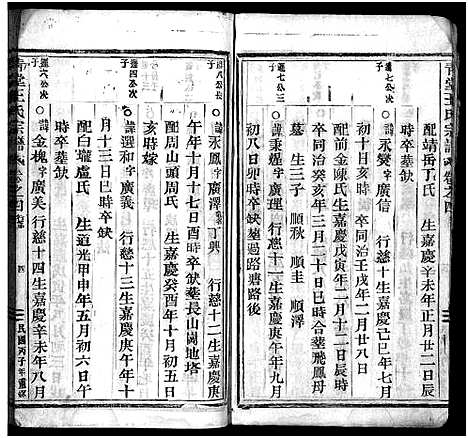 青堂王氏宗譜 卷之四
配靖岳丁氏 生嘉慶辛未年正月二十二日辰
時卒墓缺
運七公次子
諱永燮 字廣信 行慈十生嘉慶己巳年七月
初十日亥時 卒同治壬戌年二月二十八日
配前金陳氏生嘉慶戊寅年二月十二日辰時
卒同治癸亥年三月十三日巳時合塟飛鳳母
墓 生三子 順秋 順圭 順澤
運七公三子
諱秉煋 字廣行 行慈十一生嘉慶庚午年九月
初八日卯時卒缺塟過路塘路後
運八公長子
諱永鳳 字廣澤 丁興 行慈十二生嘉慶庚
午年十月十七日酉時卒缺塟長山崗地塔
配山頭周氏 生嘉慶癸酉年十月初五日
亥時嫁
運四公次子
諱選和 字廣義 行慈十三生嘉慶庚午年十
月十三日巳時卒缺
配白壠盧氏 生道光甲申年五月初六日午
時卒墓缺
運六公次子
諱金槐 字廣美 行慈十四生嘉慶辛未年八月
青堂王氏宗譜 卷之四
四
民國丙子年重修